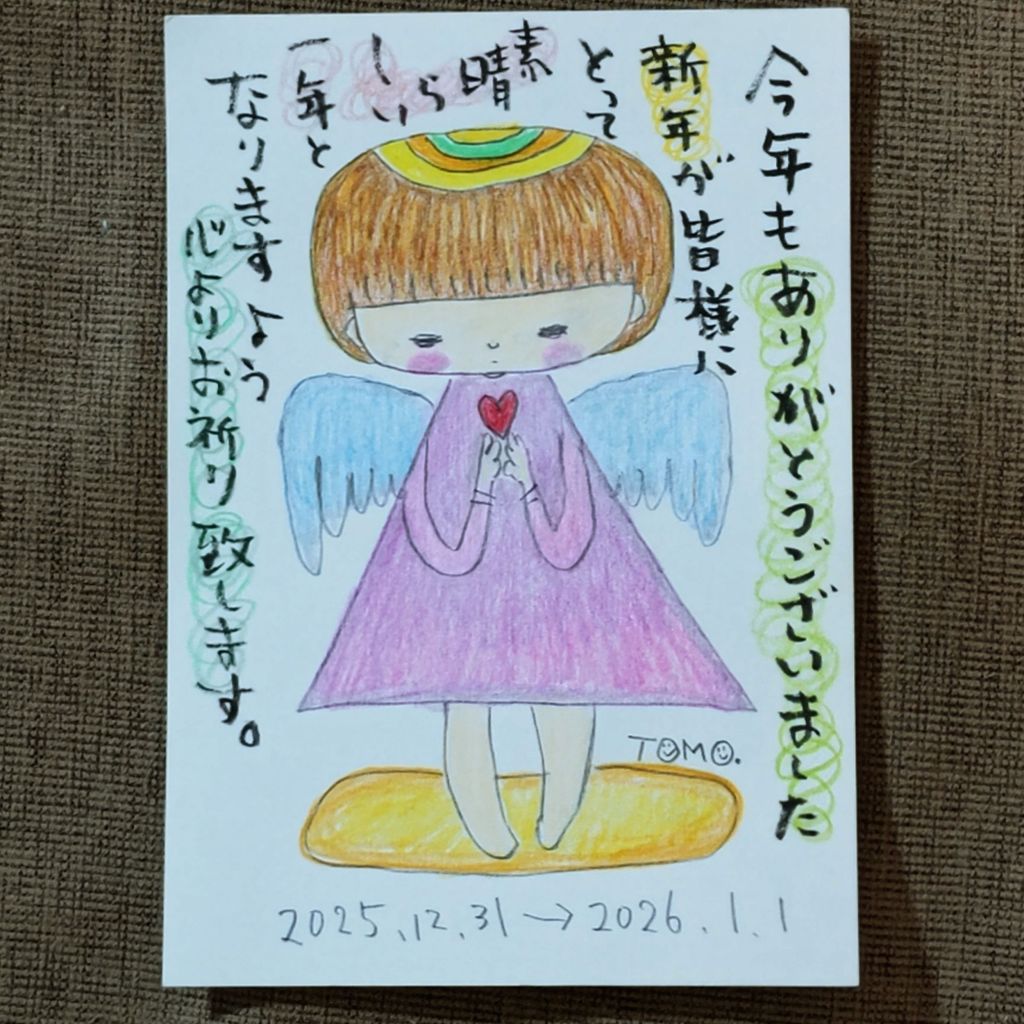 今年もありがとうございました
新年が皆様に
とって
素
晴ら
しい
一年と
なりますよう
心よりお祈り致します。
TOMO.
2025.12.31→2026.1.1